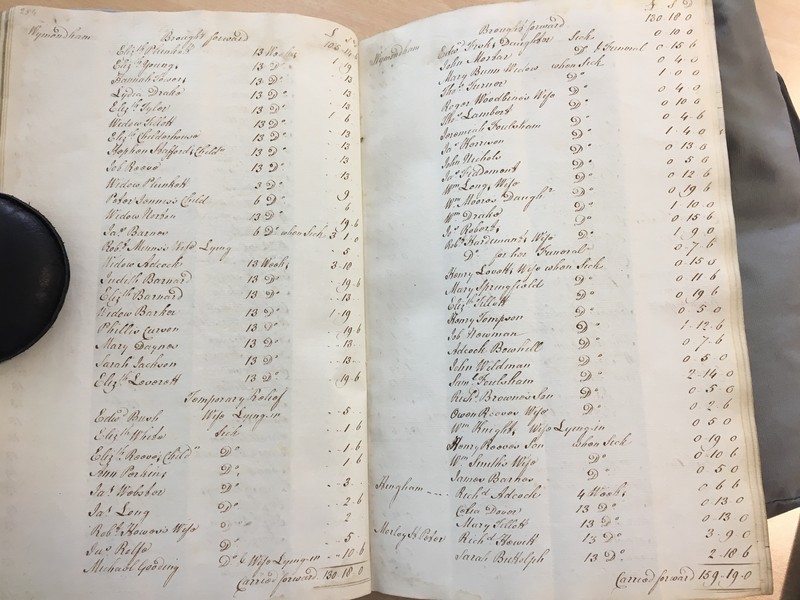 Wymondham Brought forward
Eliz.th Plunkett 13 Weeks
Eliz.th Young 13 D.o 1 19
Hannah 13 D.o 13
Lydia Drake 13 D.o 13
Eliz.th Tyler 13 D.o 13
Widow Tillett 13 D.o 1 6
Eliz.th Childerhouse 13 D.o 13
Stephen Stafford's Child.n 13 D.o 13
Job Reeve 13 D.o 13
Widow Plunkett 3 D.o
Peter Child 6 D.o 9
Widow 13 D.o 6
Ja.s Barnes 6 D.o when Sick
Rob.t Munns Wife Lying 5
Widow Adcock 13 Weeks 3-10
Judith Barnard 13 D.o 19-6
Eliz.th Barnard 13 D.o 13
Widow Barker 13 D.o 1-19
Phillis Curson 13 D.o 19 6
Mary Daynes 13 D.o 13
Sarah Jackson 13 D.o 13
Eliz.th 13 D.o 19-6
Temporary Relief
Edw.d Bush Wife Lying-in 5
Eliz.th White Sick 1 6
Eliz.th Reeve, Child.n D.o 1 6
Ann Perkins D.o 1 6
Ja.s Webster D.o 3
Ja.s Long D.o 2-6
Rob.t Howes's Wife D.o 2
Ja.s Rolfe D.o 5
Michael Gooding D.o & Wife Lying-in 10-6
Carried forward 130-18-0
Wymondham Brought forward 130-18-0
Daughter Sick 0-10-0
John Morter D.o & Funeral 0-15-6
Mary Bunn Widow when Sick 0-4-0
Tho.s Turner D.o 1-0-0
Roger Woodbine's Wife D.o 0-4-0
Tho.s Lambert D.o 0-10-6
Jeremiah Foulsham D.o 0-4-6
Ja.s Harrison D.o 1-4-0
John Nichols D.o 0-13-6
D.o 0-5-6
W.m Long's Wife D.o 0-12-6
W.m Daugh.r D.o 0-19-6
W.m Drake D.o 1-10-0
Roberts D.o 0-15-6
Rob.t Hardiman's Wife D.o 1-9-0
D.o for her Funeral 0-7-6
Henry Lovett's Wife when Sick 0-15-0
Mary Springfield D.o 0-11-6
Eliz.th Tillett D.o 0-19-6
Henry Tompson D.o
Job Newman D.o 1-12-6
Adcock Bowhill D.o 0-7-6
John Wildman D.o 0-5-0
Sam.l Foulsham D.o 2-14-0
Rich.d Browne's Son D.o 0-5-0
Owen Reeves Wife D.o 0-2-6
W.m Knights Wife Lying-in 0-5-0
Henry Reeves Son when Sick 0-19-0
W.m Smith's Wife D.o 0-10-6
James Barker D.o 0-5-0
Hingham Rich.d Adcock 4 Weeks 0-6-6
Dover 13 D.o 0-13-0
Mary Tillett 13 D.o 0-13-0
Morley St Peter Rich.d Howitt 13 D.o 3-9-0
Sarah Buttolph 13 D.o 2-18-6
Carried forward 159-19-0